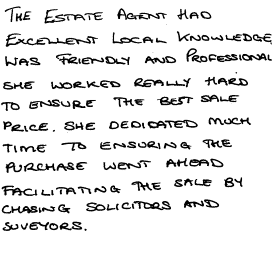 THE ESTATE AGENT HAD
EXCELLENT LOCAL KNOWLEDGE,
WAS FRIENDLY AND PROFESSIONAL
SHE WORKED REALLY HARD
TO ENSURE THE BEST SALE
PRICE. SHE DEDICATED MUCH
TIME TO ENSURING THE
PURCHASE WENT AHEAD
FACILITATING THE SALE BY
CHASING SOLICITORS AND
SUVEYORS.